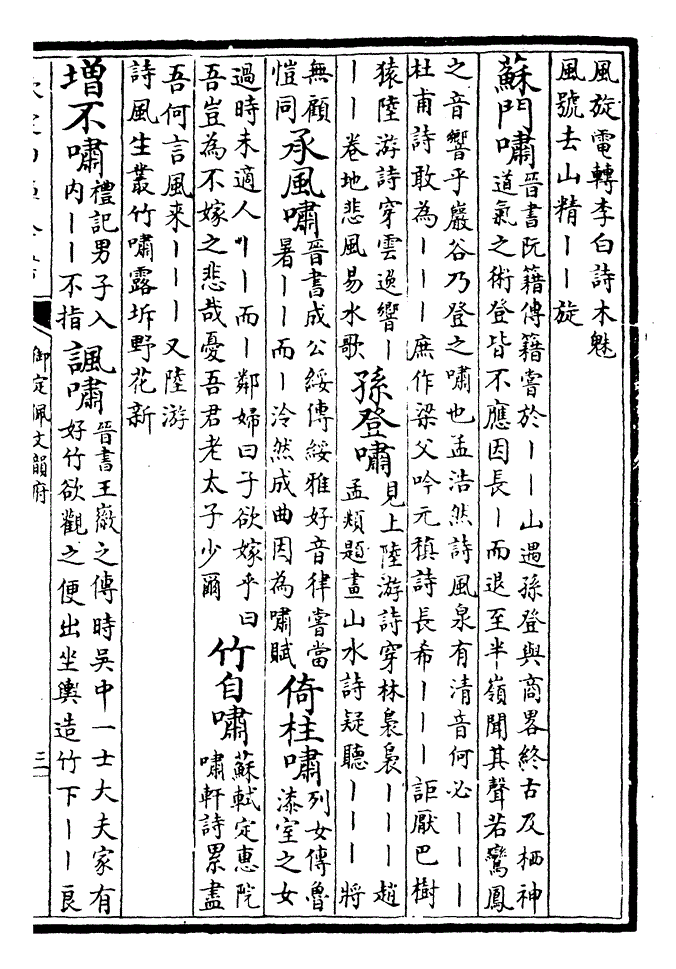 風旋電轉李白詩木魅
風號去山精丨丨旋
蘇門嘯
晉書阮籍傳籍嘗於丨丨山遇孫登與商畧終古及栖神
道氣之術登皆不應因長丨而退至半嶺聞其聲若鸞鳳
之音響乎巖谷乃登之嘯也孟浩然詩風泉有清音何必丨丨丨
杜甫詩敢為丨丨丨庶作梁父吟元稹詩長希丨丨丨詎厭巴樹
猿陸游詩穿雲逸響丨
丨丨卷地悲風易水歌
孫登嘯
見上陸游詩穿林裊裊丨丨丨趙
孟頫題畫山水詩疑聽丨丨丨將
無顧
愷同
承風嘯
晉書成公綏傳綏雅好音律嘗當
暑丨丨而丨泠然成曲因為嘯賦
倚柱嘯
列女傳魯
漆室之女
過時未適人丨丨而丨鄰婦曰子欲嫁乎曰
吾豈為不嫁之悲哉憂吾君老太子少爾
竹自嘯
蘇軾定惠院
嘯軒詩累盡
吾何言風來丨丨丨又陸游
詩風生叢竹嘯露坼野花新
增不嘯
禮記男子入
內丨丨不指
諷嘯
晉書王徽之傳時吳中一士大夫家有
好竹欲觀之便出坐輿造竹下丨丨良
御定佩文韻府
三